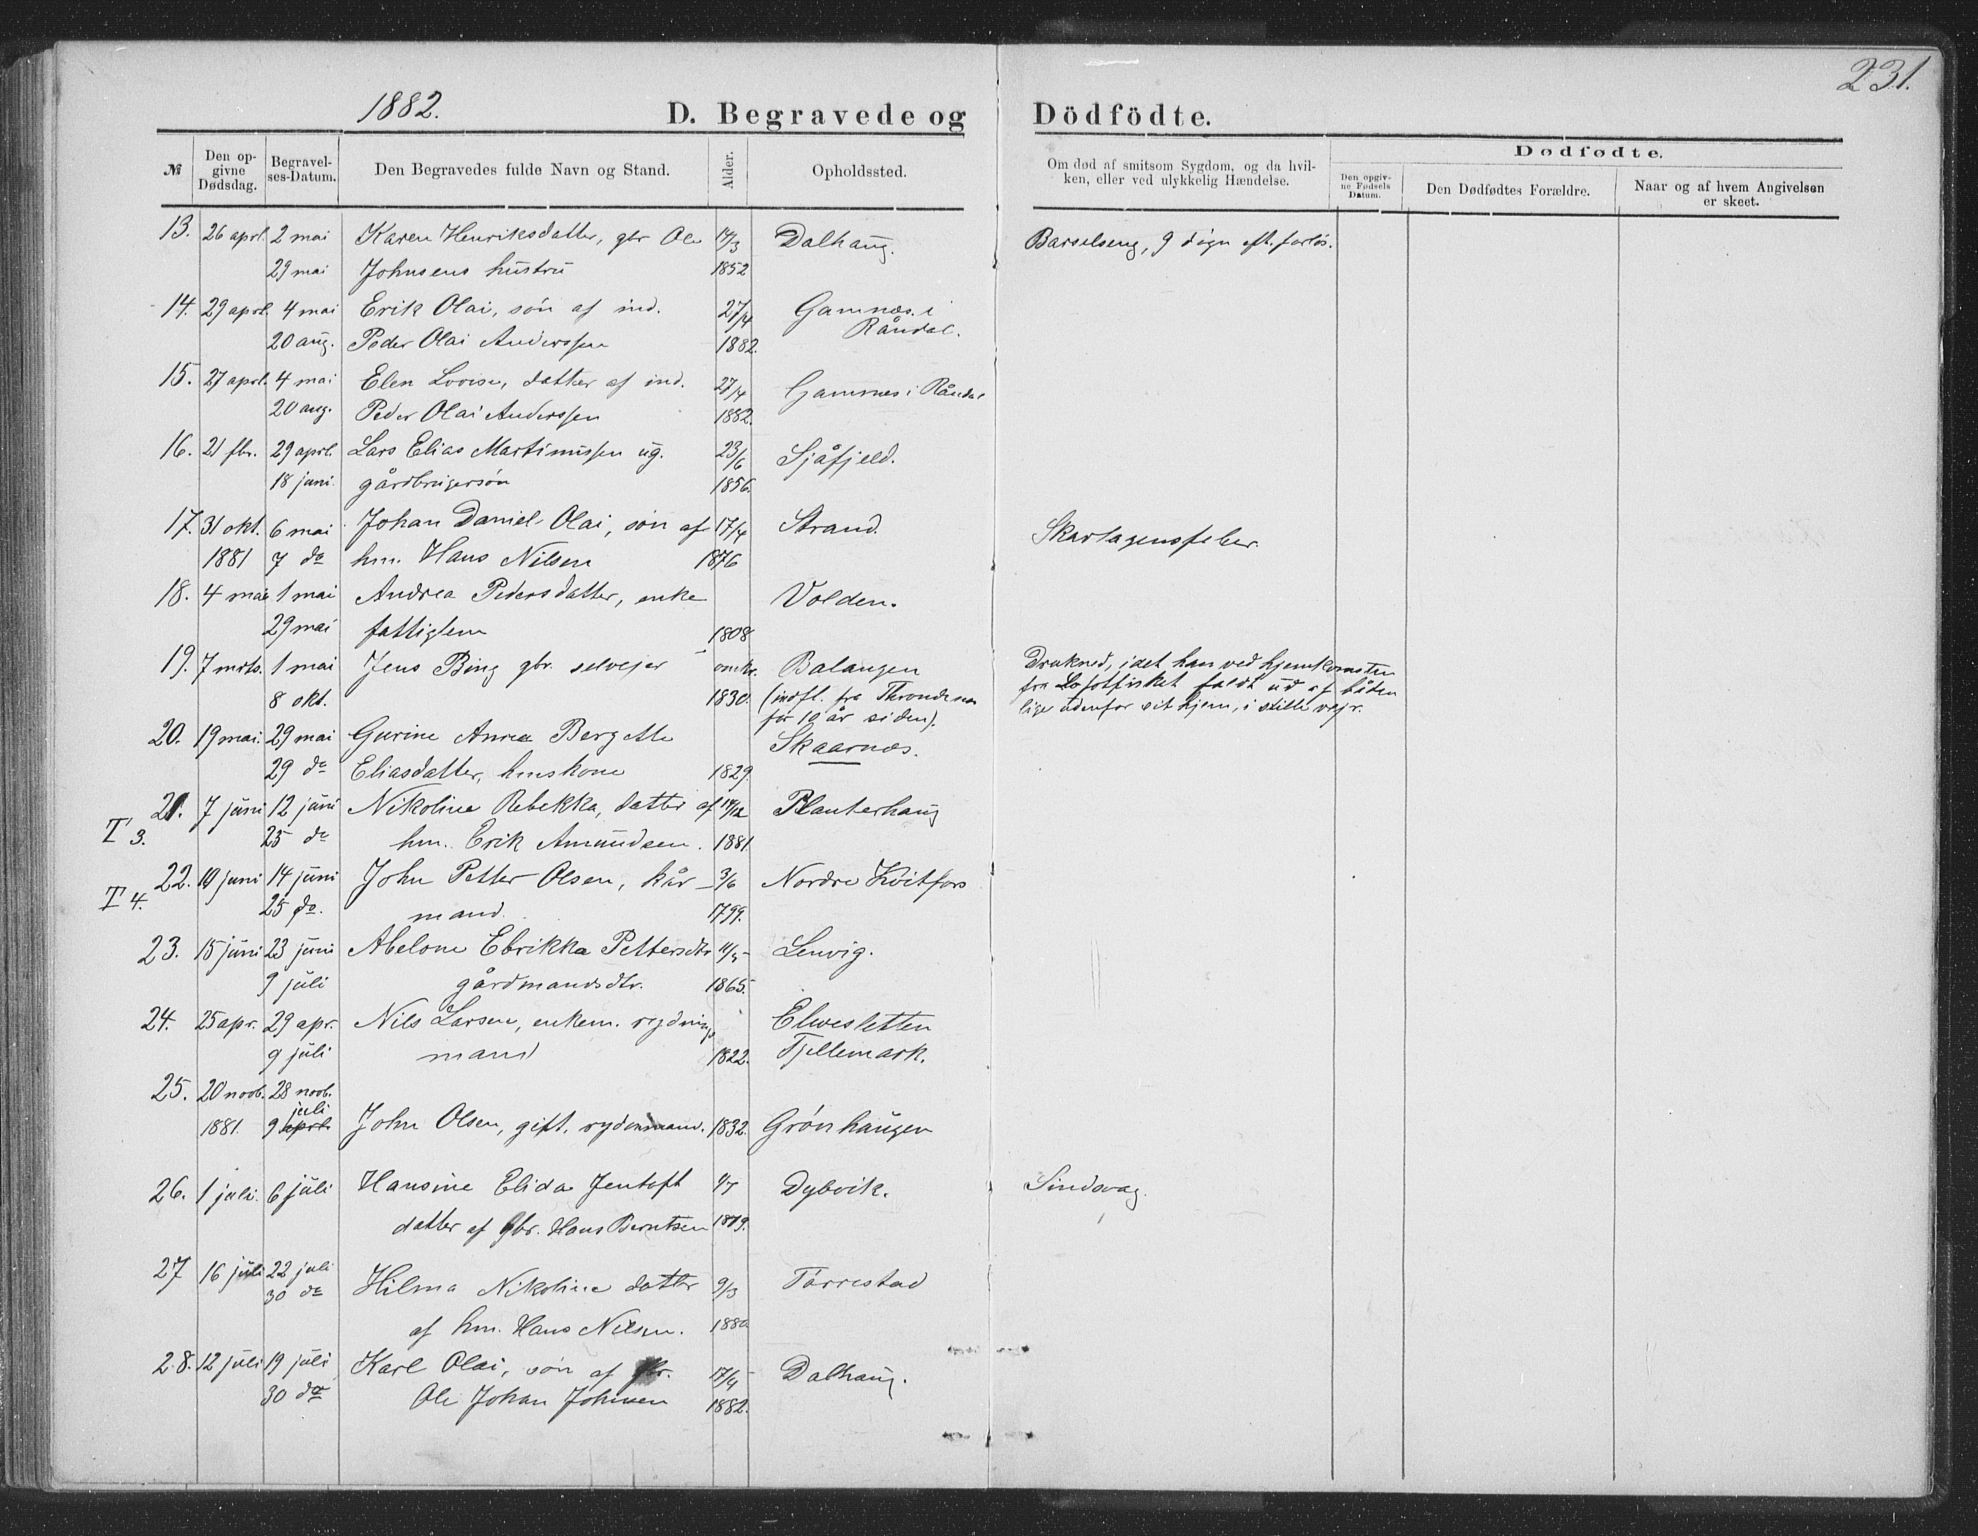 231.
1882.
D. Begravede og Dödfödte.
№
Den opgivne Dødsdag.
Begravelses-Datum.
Den Begravedes fulde Navn og Stand.
Alder.
Opholdssted.
Om død af smitsom Sygdom, og da hvilken, eller ved ulykkelig Hændelse.
Dødfødte.
Den opgivne Fødsels Datum.
Den Dødfødtes Forældre.
Naar og af hvem Angivelsen er skeet.
13. 26 aprl. 2 mai Karen Henriksdatter, gbr Ole 14/3 Dalhaug. Barselseng, 9 døgn eft. forløs.
29 mai Johnsens hustru 1852
14. 29 aprl. 4 mai Erik Olai, søn af ind. 27/4 Gamnæs i
20 aug. Peder Olai Anderssen 1882. Råndal.
15. 27 aprl. 4 mai Elen Lovise, datter af ind. 27/4 Gamnes i Råndal
20 aug. Peder Olai Anderssen 1882.
16. 21 fbr. 29 aprl. Lars Elias Martinussen ug. 23/6 Sjåfjeld.
18 juni. gårdbrugersøn 1856.
17. 31 okt. 6 mai Johan Daniel Olai, søn af 17/4 Strand. Skarlagensfeber.
1881 7 do hm. Hans Nilsen 1876
18. 4 mai 1 mai Andrea Pedersdatter, enke Volden.
29 mai fattiglem 1808
19. 7 mrts. 1 mai Jens Bing gbr. selvejer omkr. Balangen Drukned, idet han ved hjemkomsten
8 okt. 1830. (indfl. fra Throndenæs fra Lofotfisket faldt ud af båden
for 10 år siden). lige udenfor sit hjem, i stille vejr.
20. 19 mai. 29 mai Gurine Anna Bergette Skaarnæs.
29 do Eliasdatter, hmskone 1829.
21. 7 juni 12 juni Nikoline Rebekka, datter af 14/12 Planterhaug
T 3. 25 do hm. Erik Amundsen. 1881.
22. 10 juni 14 juni John Petter Olsen, kår- 3/6 Nordre Kvitfors
T 4. 25 do. mand. 1799.
23. 15 juni 23 juni Abelone Ebrikka Pettersdtr Lenvig.
9 juli gårdmandsdtr. 1865.
24. 25 apr. 29 apr. Nils Larsen, enkem. rydnings Elvesletten
9 juli mand 1822. Tjellemark.
25. 20 novb. 28 novb.
juli
1881. 9 aprl. John Olsen, gift, rydn.mand. 1832. Grønhaugen
26. 1 juli. 6 juli Hansine Elida Jentoft Dybvik. Sindsvag.
datter af gbr. Hans Berntsen 1879.
27 16 juli 22 juli Hilma Nikoline datter 9/3 Tørrestad
30 do af hm. Hans Nilsen. 1880
28. 12 juli 19 juli Karl Olai, søn af gbr. 17/4 Dalhaug.
30 do Ole Johan Johnsen 1882.